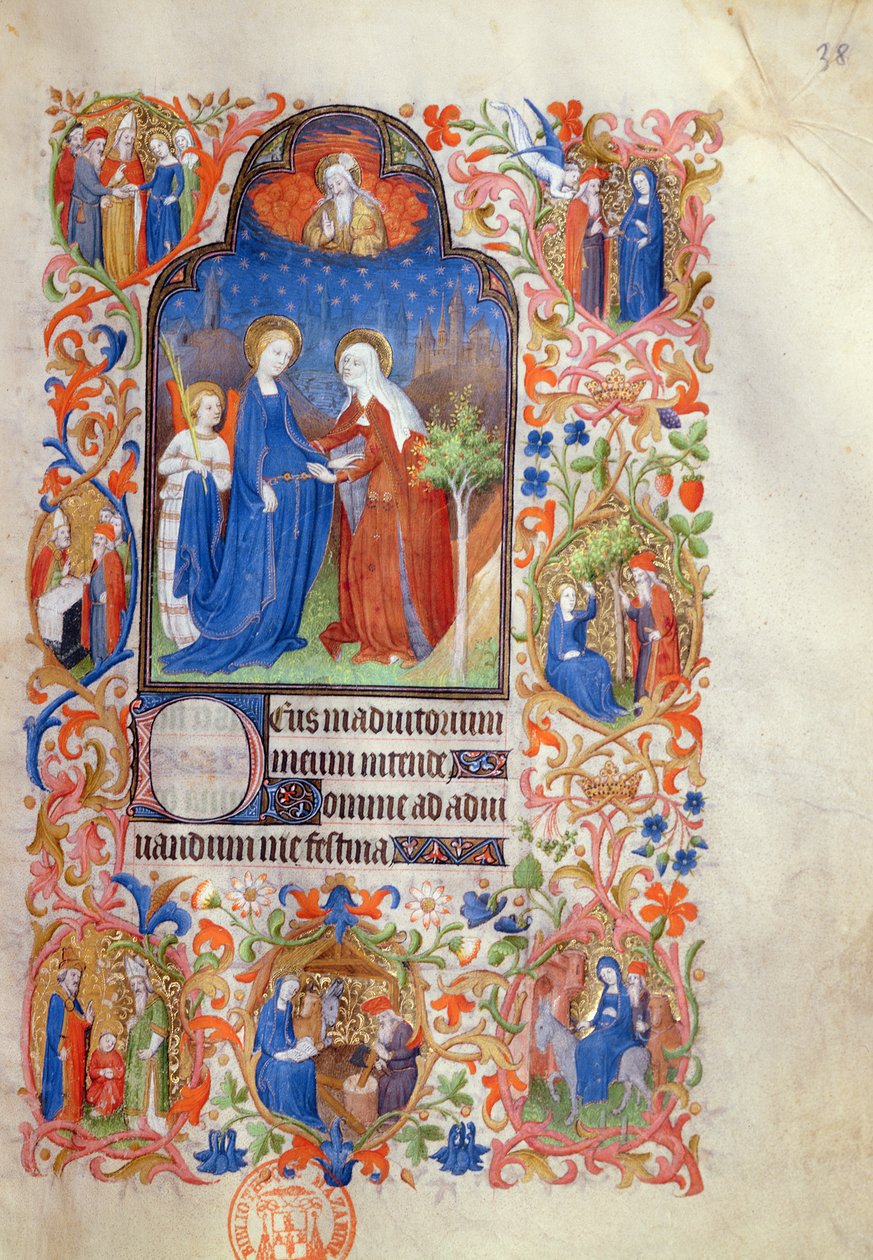 38
Deus in adiutorium
meum intende,
Domine ad adiu
uandum me festina
BIBLIOTH MAZARINE